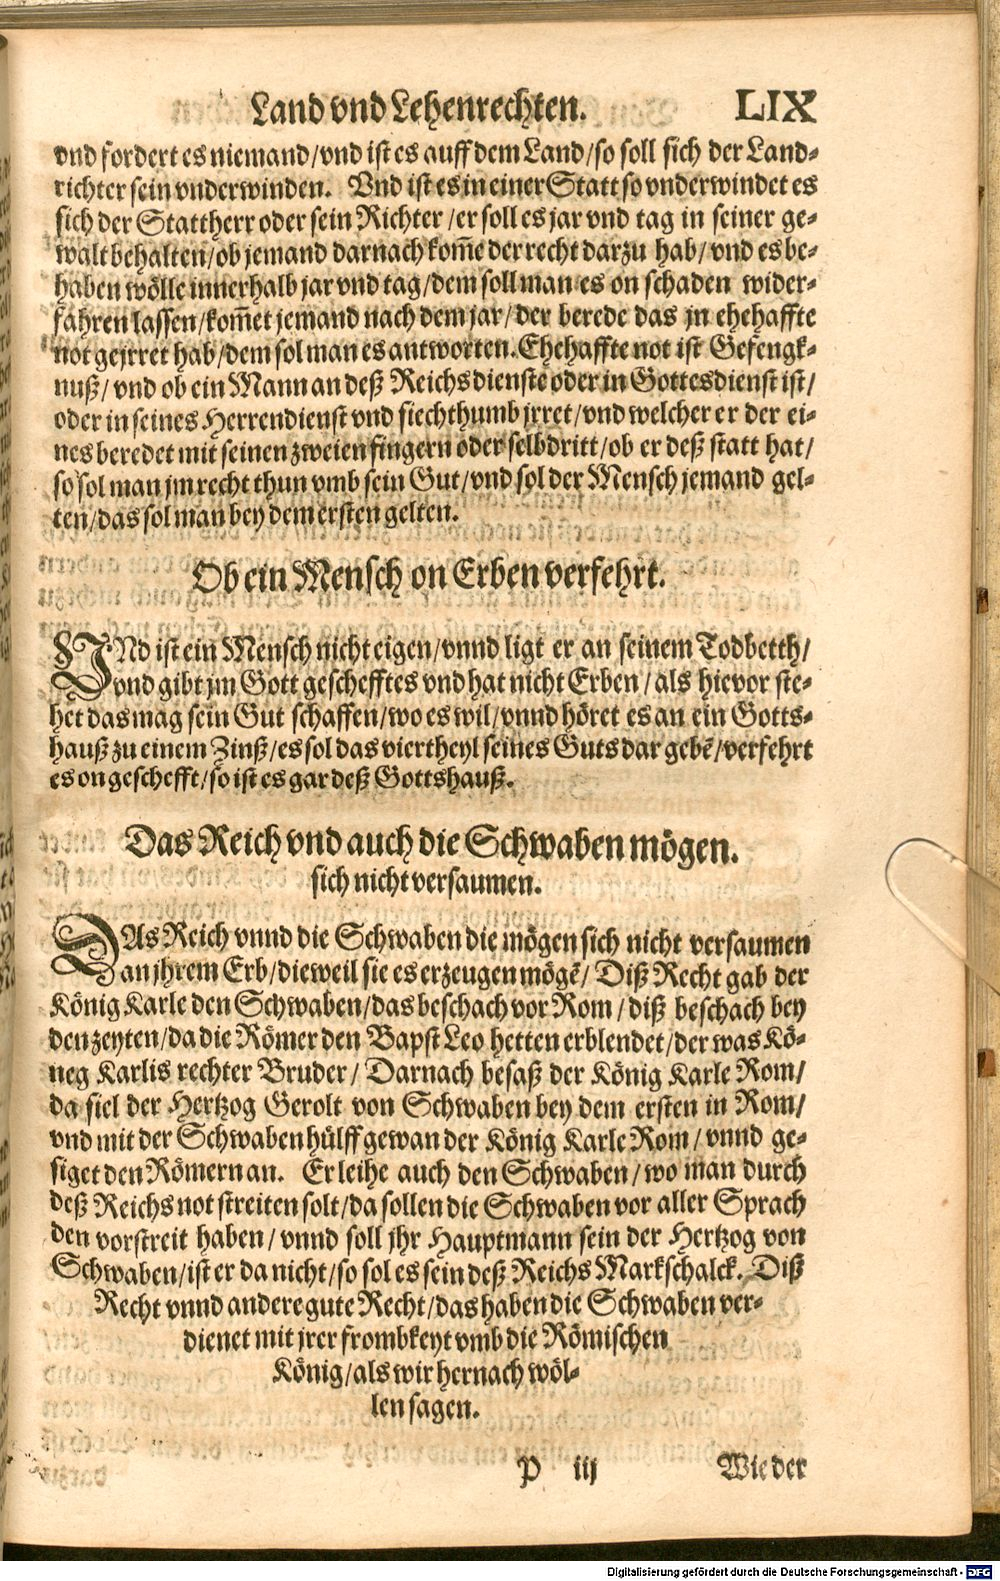 Land vnd Lehenrechten. LIX
vnd fordert es niemand/vnd ist es auff dem Land/so soll sich der Land-
richter sein vnderwinden. Vnd ist es in einer Statt so vnderwindet es
sich der Stattherr oder sein Richter/er soll es jar vnd tag in seiner ge-
walt behalten/ob jemand darnach kom̃e der recht darzu hab/vnd es be-
haben wölle innerhalb jar vnd tag/dem soll man es on schaden wider-
fahren lassen/kom̃et jemand nach dem jar/der berede das jn ehehaffte
not gejrret hab/dem sol man es antworten. Ehehaffte not ist Gefengk-
nuß/vnd ob ein Mann an deß Reichs dienste oder in Gottesdienst ist/
oder in seines Herrendienst vnd siechthumb jrret/vnd welcher er der ei-
nes beredet mit seinen zweien fingern oder selbdritt/ob er deß statt hat/
so sol man jm recht thun vmb sein Gut/vnd sol der Mensch jemand gel-
ten/das sol man bey dem ersten gelten.
Ob ein Mensch on Erben verfehrt.
VNd ist ein Mensch nicht eigen/vnnd ligt er an seinem Todbetth/
vnd gibt jm Gott geschefftes vnd hat nicht Erben/als hievor ste-
het das mag sein Gut schaffen/wo es wil/vnnd höret es an ein Gotts-
hauß zu einem Zinß/es sol das viertheyl seines Guts dar gebẽ/verfehrt
es on geschefft/so ist es gar deß Gottshauß.
Das Reich vnd auch die Schwaben mögen.
sich nicht versaumen.
DAs Reich vnnd die Schwaben die mögen sich nicht versaumen
an jhrem Erb/dieweil sie es erzeugen mögẽ/Diß Recht gab der
König Karle den Schwaben/das beschach vor Rom/diß beschach bey
den zeyten/da die Römer den Bapst Leo hetten erblendet/der was Kö-
neg Karlis rechter Bruder/Darnach besaß der König Karle Rom/
da fiel der Hertzog Gerolt von Schwaben bey dem ersten in Rom/
vnd mit der Schwaben hülff gewan der König Karle Rom/vnnd ge-
siget den Römern an. Er leihe auch den Schwaben/wo man durch
deß Reichs not streiten solt/da sollen die Schwaben vor aller Sprach
den vorstreit haben/vnnd soll jhr Hauptmann sein der Hertzog von
Schwaben/ist er da nicht/so sol es sein deß Reichs Markschalck. Diß
Recht vnnd andere gute Recht/das haben die Schwaben ver-
dienet mit jrer frombkeyt vmb die Römischen
König/als wir hernach wöl-
len sagen.
P iij Wie der
Digitalisierung gefördert durch die Deutsche Forschungsgemeinschaft - DFG